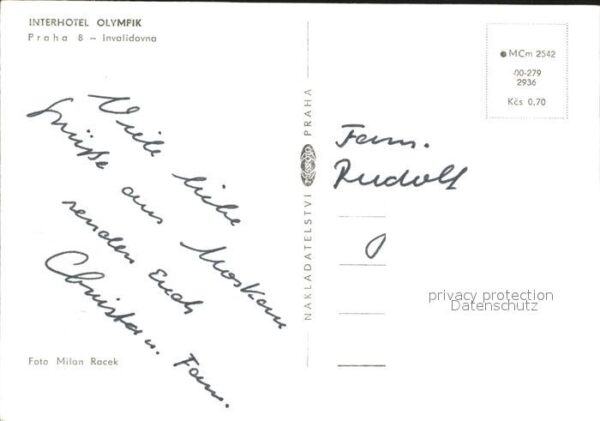 INTERHOTEL OLYMPIK
Praha 8 – Invalidovna
Viele liebe
Grüße aus Moskau
senden Euch
Christa u. Fam.
Foto Milan Racek
NAKLADATELSTVÍ PRAHA
MCm 2542
00-279
2936
Kčs 0,70
Fam.
Rudolf
privacy protection
Datenschutz